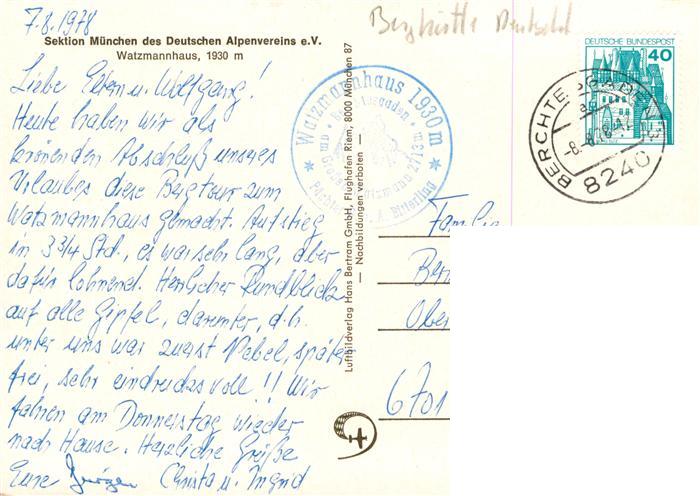 7.8.1978
Sektion München des Deutschen Alpenvereins e.V.
Watzmannhaus, 1930 m
Liebe Eltern u. Wolfgang!
Heute haben wir als
krönenden Abschluß unseres
Urlaubes diese Bergtour zum
Watzmannhaus gemacht. Aufstieg
in 3 3/4 Std., es war sehr lang, aber
dafür lohnend. Herrlicher Rundblick
auf alle Gipfel, darunter, d.h.
unter uns war zuerst Nebel, später
frei, sehr eindrucksvoll!! Wir
fahren am Donnerstag wieder
nach Hause. Herzliche Grüße
Eure Jürgen Christa u. Ingrid
Luftbildverlag Hans Bertram GmbH, Flughafen Riem, 8000 München 87
— Nachbildungen verboten —
Watzmannhaus 1930 m
DEUTSCHE BUNDESPOST
40
BERCHTESGADEN
-8.-8.78-12
8240
Familie
Ber
Obe
6701